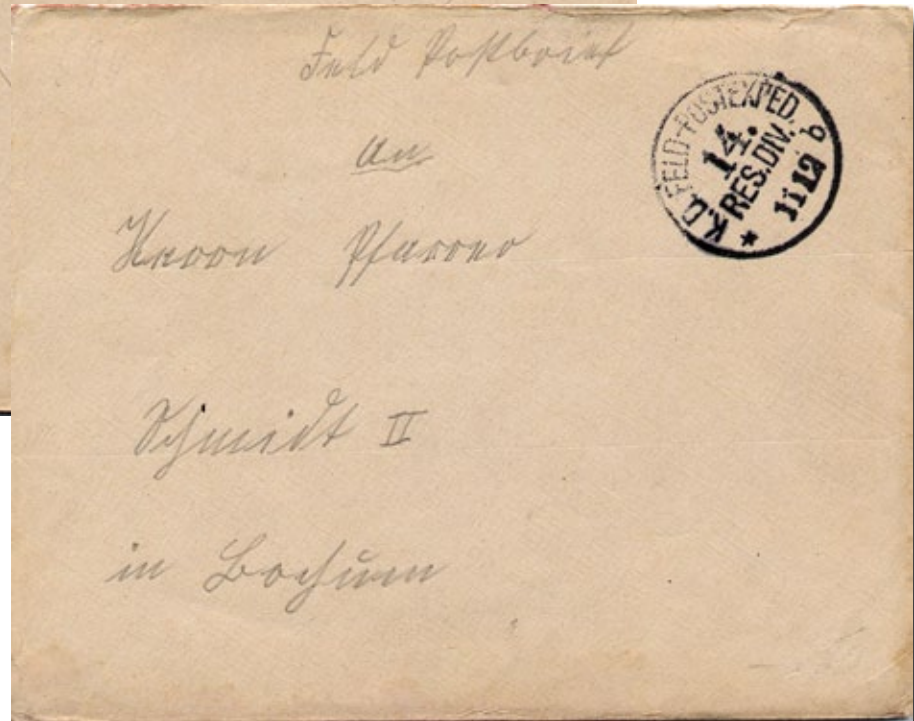 Feld Postbrief
K.D. FELD-POSTEXPED.
14.
RES.DIV.
* 11 12 b
An
Herrn Pfarrer
Schmidt II
in Bochum